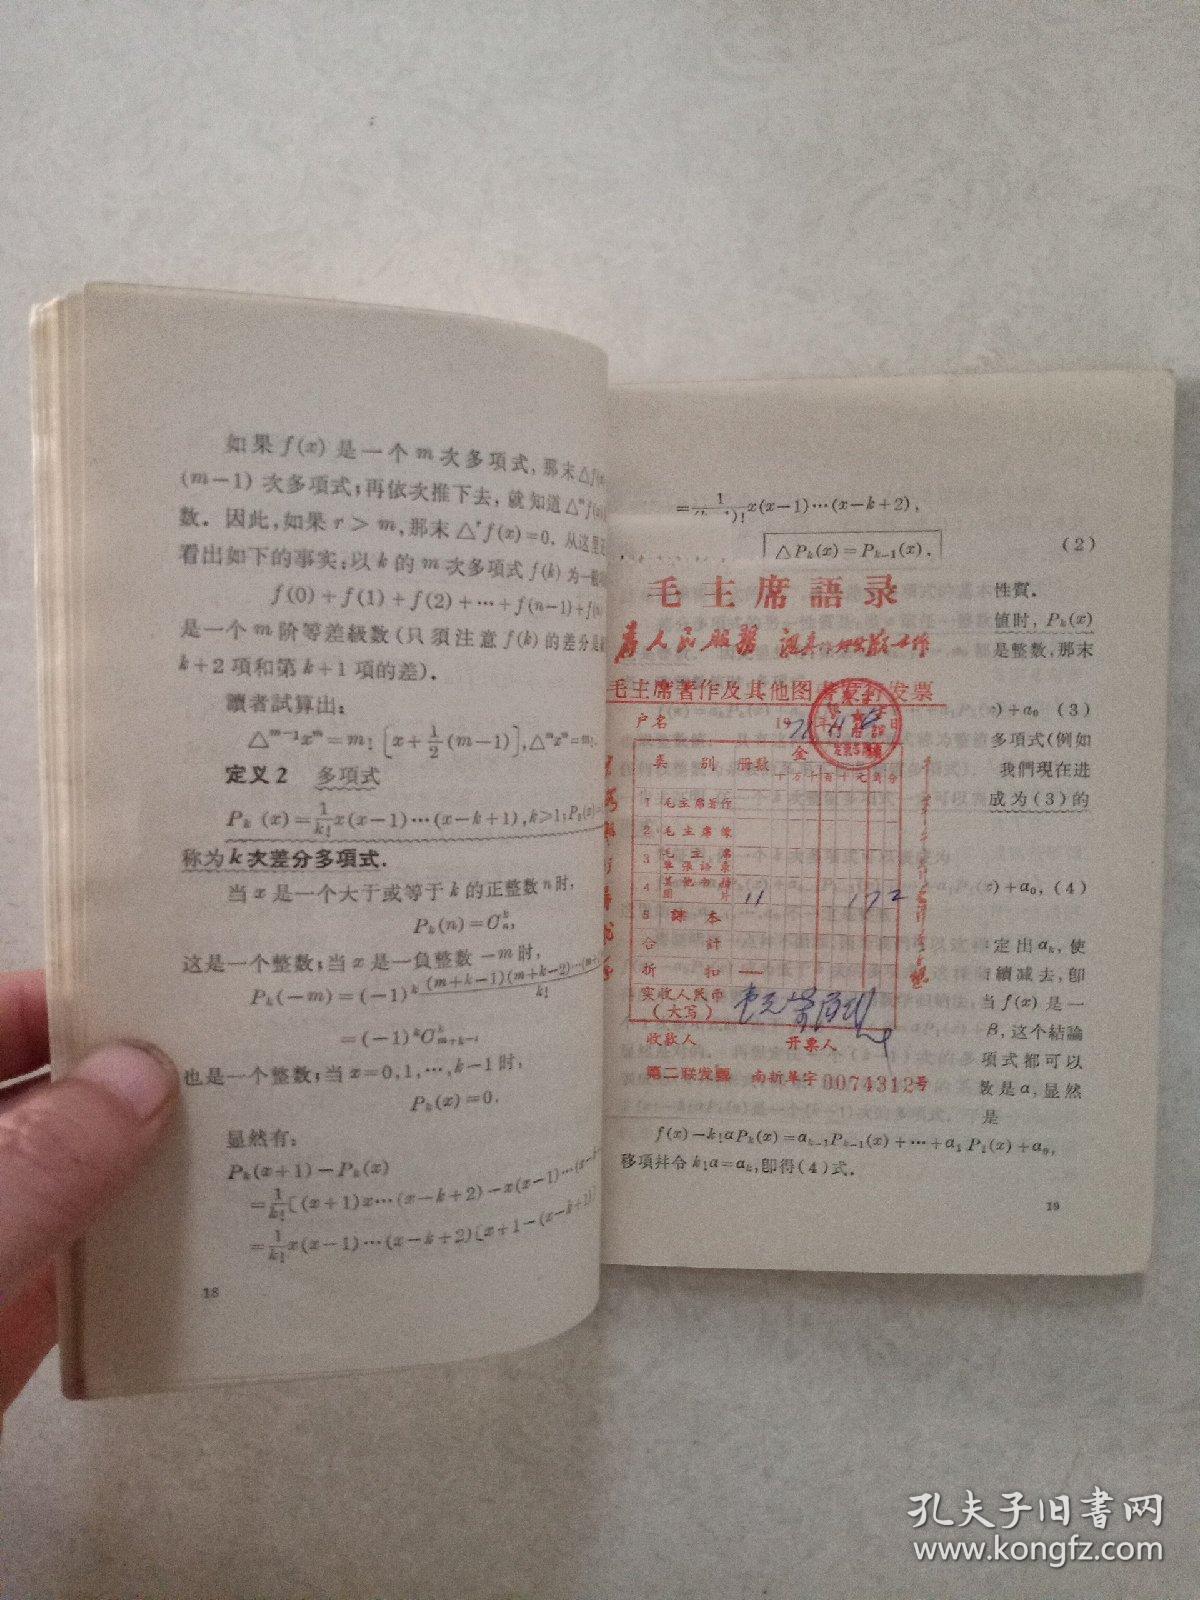 如果 f(x) 是一个 m 次多項式，那末△f(x)
(m−1) 次多項式；再依次推下去，就知道△ᵐf(x)
数。因此，如果 r＞m，那末△ʳf(x)=0．从这里
看出如下的事实：以 k 的 m 次多項式 f(k) 为一般
f(0)+f(1)+f(2)+⋯+f(n−1)+f(n
是一个 m 阶等差級数(只須注意 f(k) 的差分是
k+2 項和第 k+1 項的差)．
讀者試算出：
△ᵐ⁻¹xᵐ=m![x+1/2(m−1)],△ᵐxᵐ=m!．
定义2 多項式
Pₖ(x)=1/k! x(x−1)⋯(x−k+1),k≥1;P₀(x)=
称为 k 次差分多項式．
当 x 是一个大于或等于 k 的正整数 n 时，
Pₖ(n)=Cₙᵏ,
这是一个整数；当 x 是一負整数 −m 时，
Pₖ(−m)=(−1)ᵏ (m+k−1)(m+k−2)⋯(m+/k!
=(−1)ᵏCᵏₘ₊ₖ₋₁
也是一个整数；当 x=0,1,⋯,k−1 时，
Pₖ(x)=0．
显然有：
Pₖ(x+1)−Pₖ(x)
=1/k![(x+1)x⋯(x−k+2)−x(x−1)⋯(x−k
=1/k! x(x−1)⋯(x−k+2)[x+1−(x−k+1)]
18
=1/ )! x(x−1)⋯(x−k+2),
△Pₖ(x)=Pₖ₋₁(x)． (2)
性質．
值时，Pₖ(x)
是整数，那末
)+α₀ (3)
多項式(例如
我們現在进
成为(3)的
x)+α₀, (4)
定出 αₖ，使
續减去，卽
当 f(x) 是一
β，这个結論
項式都可以
数是 α，显然
是
f(x)−k!αPₖ(x)=αₖ₋₁Pₖ₋₁(x)+⋯+α₁P₁(x)+α₀,
移項幷令 k!α=αₖ，卽得(4)式．
19
毛主席語录
为人民服务 認真作好出版工作
毛主席著作及其他图书发行发票
户名 19 年 月 日
类 别 册数 金
十万千百十元角分
1 毛主席著作
2 毛主席像
3 毛主席单張語录
4 其他书籍图片 11 172
5 課本
合 計
折 扣
实收人民币(大写)
收款人 开票人
第二联发票 南新革字 0074312号
孔夫子旧书网
www.kongfz.com